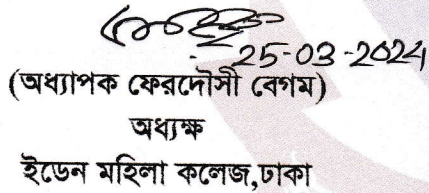 25-03-2024
(অধ্যাপক ফেরদৌসী বেগম)
অধ্যক্ষ
ইডেন মহিলা কলেজ,ঢাকা